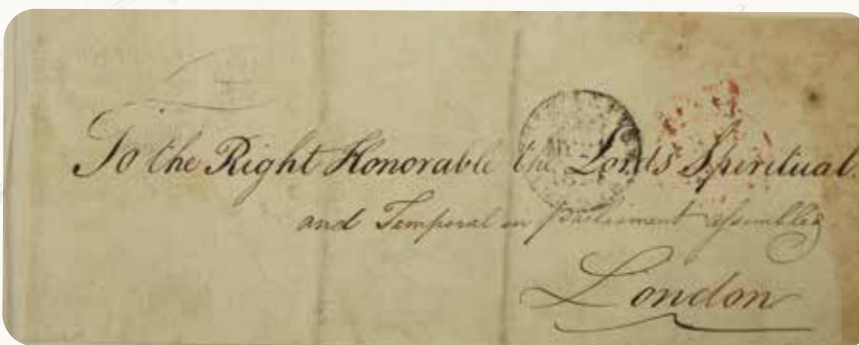 To the Right Honorable the Lords Spiritual
and Temporal in Parliament assembled
London